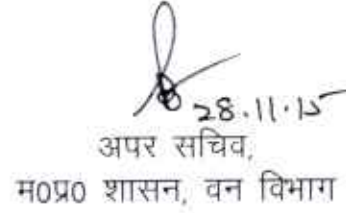 28.11.15
अपर सचिव,
म0प्र0 शासन, वन विभाग